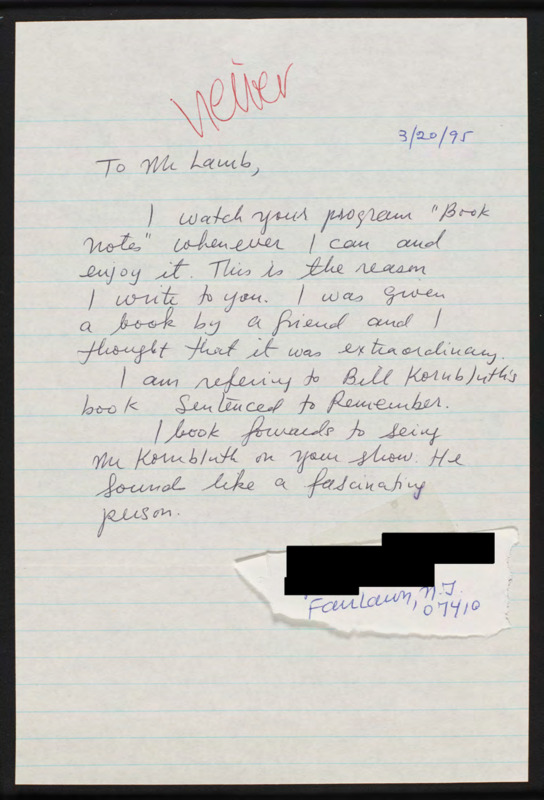 never
3/20/95
To Mr Lamb,
I watch your program "Book
Notes" whenever I can and
enjoy it. This is the reason
I write to you. I was given
a book by a friend and I
thought that it was extraordinary.
I am refering to Bill Kornbluth's
book Sentenced to Remember.
I book forwards to seing
Mr Kornbluth on your show. He
sound like a fascinating
person.
FairLawn, N.J.
07410